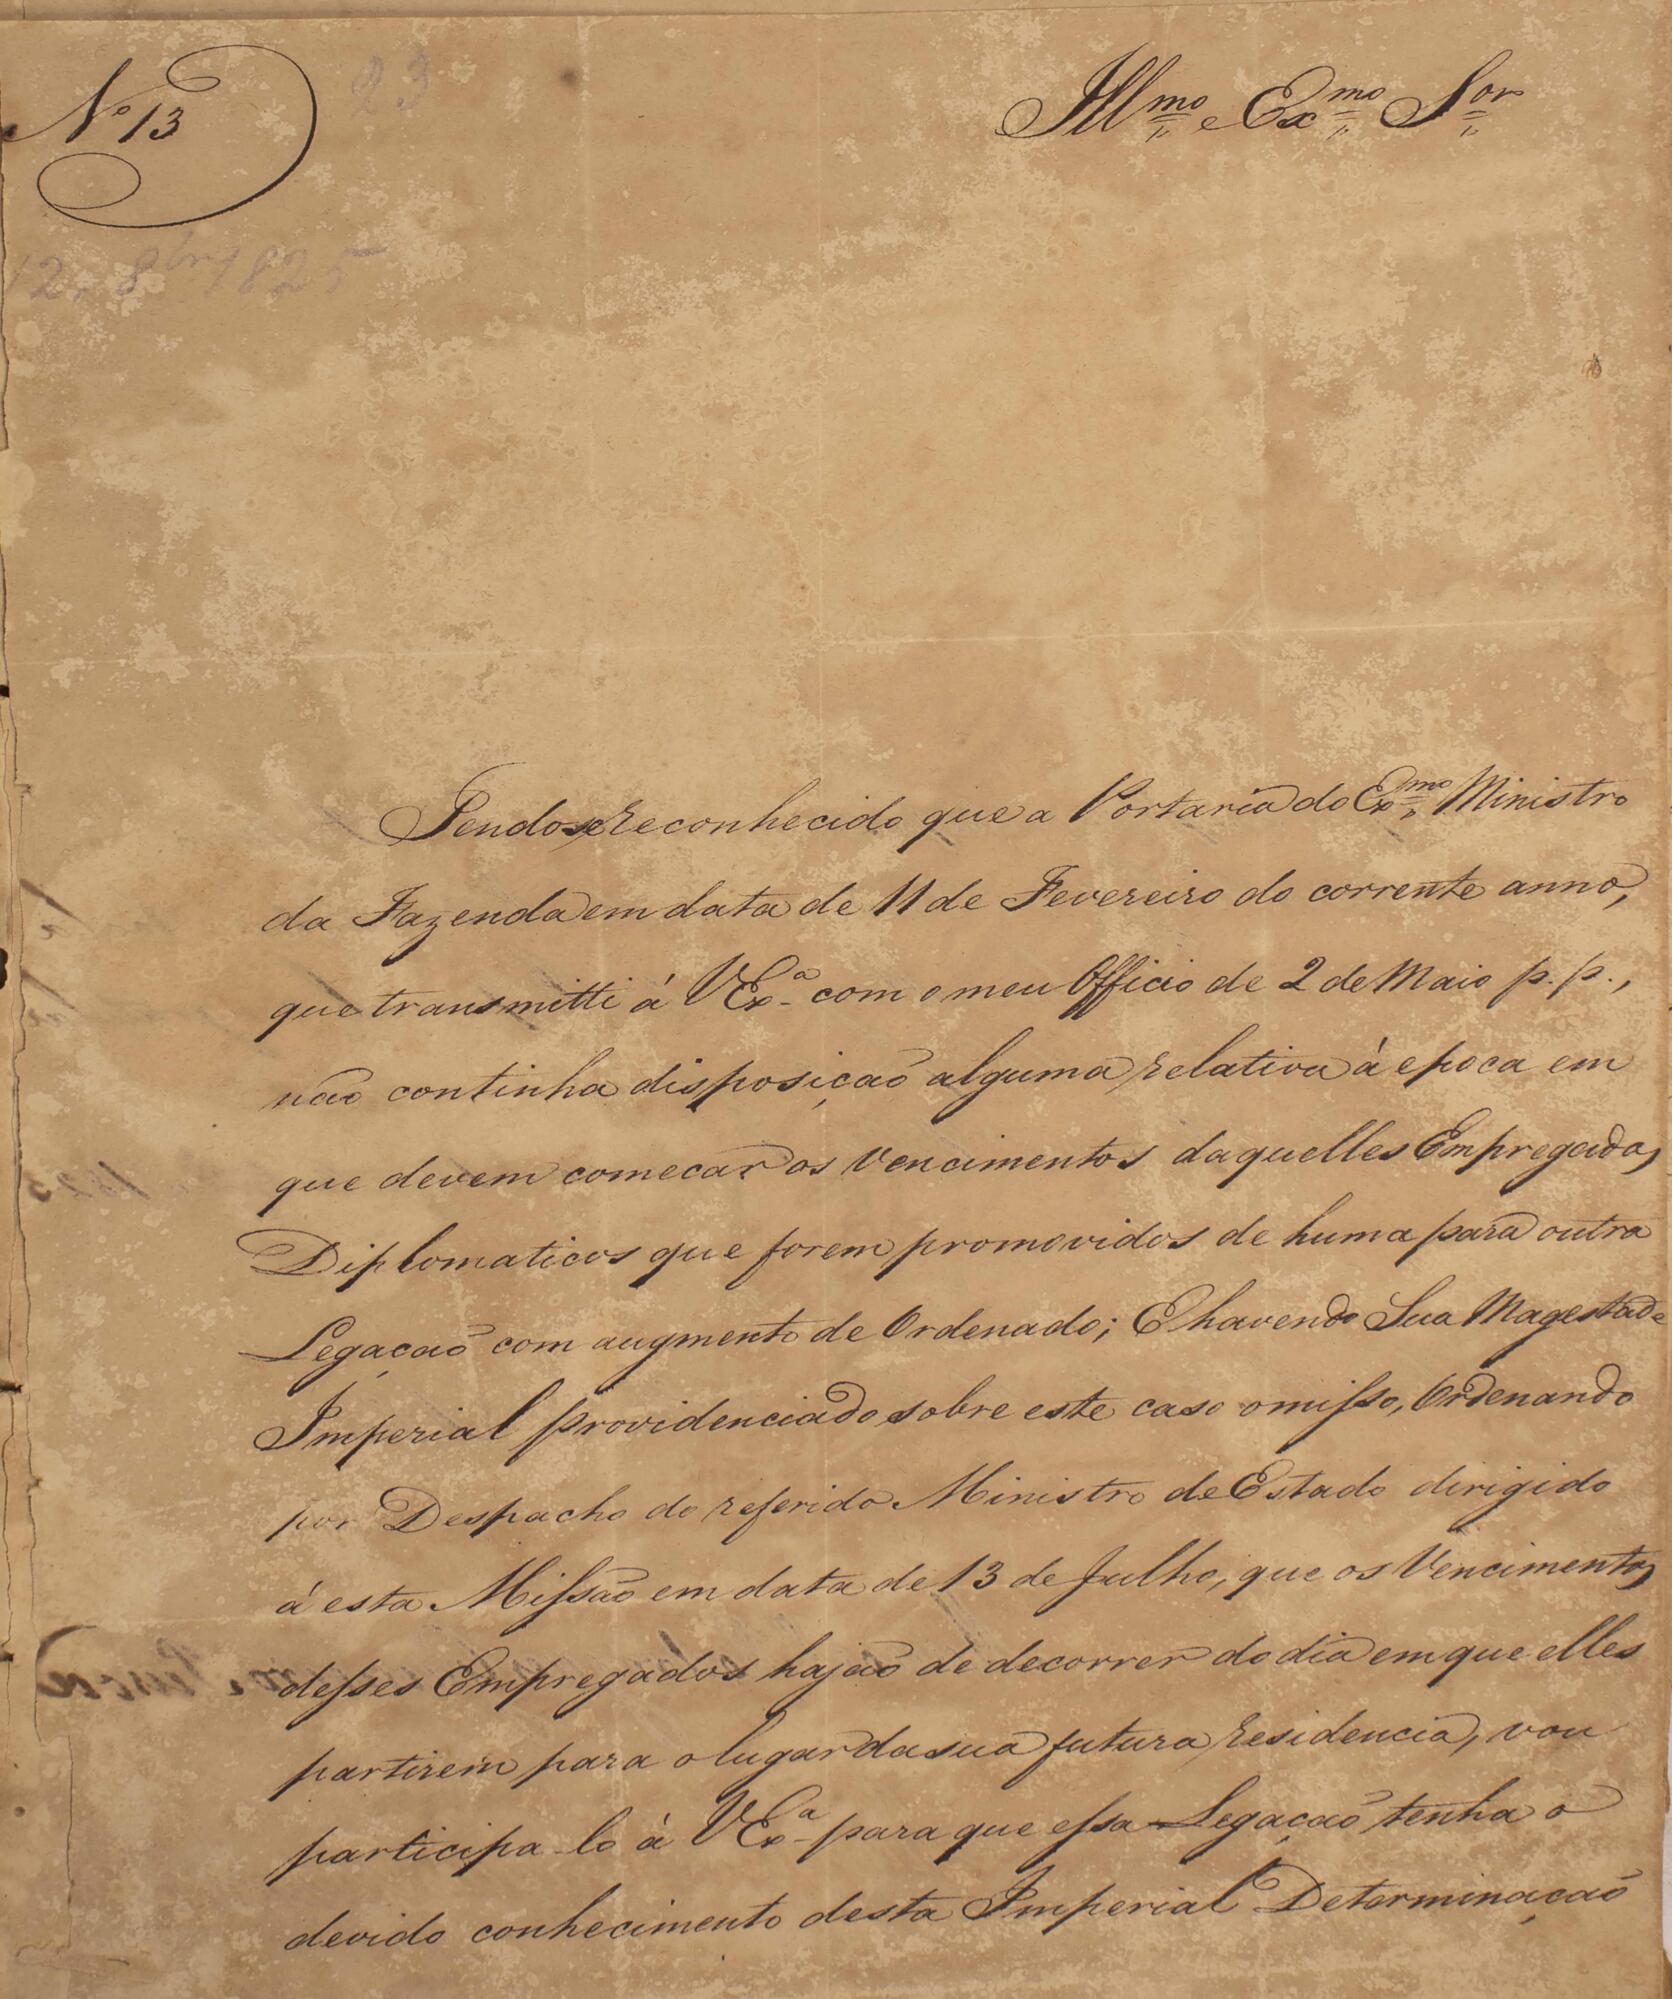 Nº 13
23
Illmo e Exmo Sor
12. 8bro 1825
Tendo-se reconhecido que a Portaria do Exmo Ministro
da Fazenda em data de 11 de Fevereiro do corrente anno,
que transmitti á VExa com o meu Officio de 2 de Maio p. p.,
não continha disposição alguma relativa á epoca em
que devem comecar os Vencimentos daquelles Empregados
Diplomaticos que forem promovidos de huma para outra
Legação com augmento de Ordenado; E havendo Sua Magestade
Imperial providenciado sobre este caso omisso, Ordenando
por Despacho do referido Ministro de Estado dirigido
á esta Missão em data de 13 de Julho, que os Vencimentos
desses Empregados hajaõ de decorrer do dia em que elles
partirem para o lugar da sua futura residencia, vou
participa-lo á VExa para que essa Legação tenha o
devido conhecimento desta Imperial Determinação